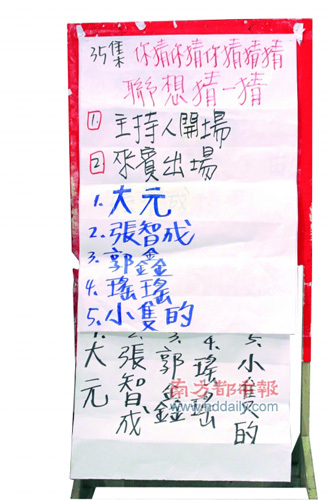 35集 你猜你猜你猜猜猜
聯想猜一猜
1 主持人開場
2 來賓出場
1. 大元
2. 張智成
3. 郭鑫
4. 瑤瑤
5. 小隻的
1. 2. 3. 4. 5.
大元
張智成
郭鑫
瑤瑤
小隻的
南方都市報
www.nddaily.com